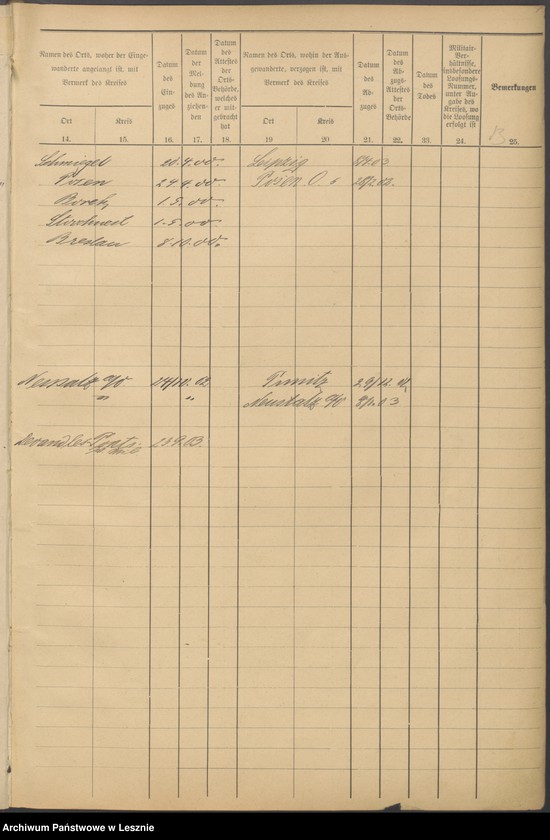 Namen des Orts, woher der Einge-
wanderte angelangt ist, mit
Vermerk des Kreises
Ort
Kreis
14.
15.
Datum
des
Ein-
zuges
16.
Datum
der
Mel-
dung
des An-
ziehen-
den
17.
Datum
des
Attestes
der
Orts-
Behörde,
welches
er mit-
gebracht
hat
18.
Namen des Orts, wohin der Aus-
gewanderte, verzogen ist, mit
Vermerk des Kreises
Ort
Kreis
19
20
Datum
des
Ab-
zuges
21.
Datum
des
Ab-
zugs-
Attestes
der
Orts-
Behörde
22.
Datum
des
Todes
23.
Militair-
Ver-
hältnisse,
insbesondere
Loosungs-
Nummer,
unter An-
gabe des
Kreises, wo
die Loosung
erfolgt ist
24.
Bemerkungen
13
25.
Schmiegel 20.4.00. Leipzig
Posen 24.4.00. Posen O
Borek 1.5.00.
1.5.00.
Breslau 8 10.00.
Neusalz 9/0 24/10. 02 Punitz 29/12. 02
" " Neusalz 9/0 8/1.03